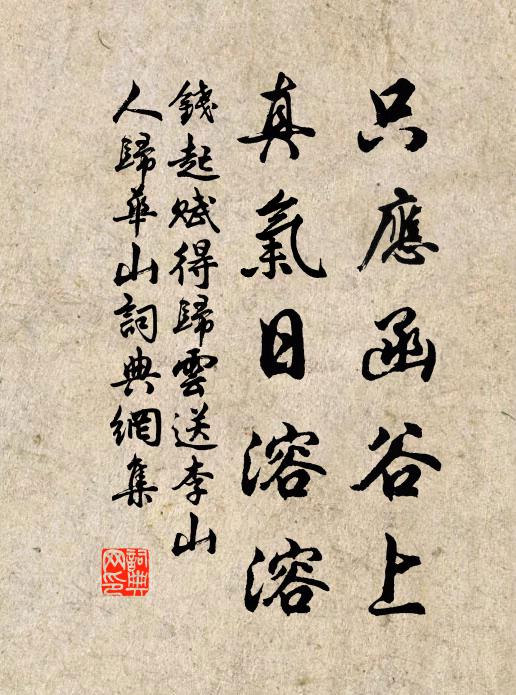 只應函谷上
真氣日溶溶
錢起賦得歸雲送李山
人歸華山詞典網集
詞典
网印